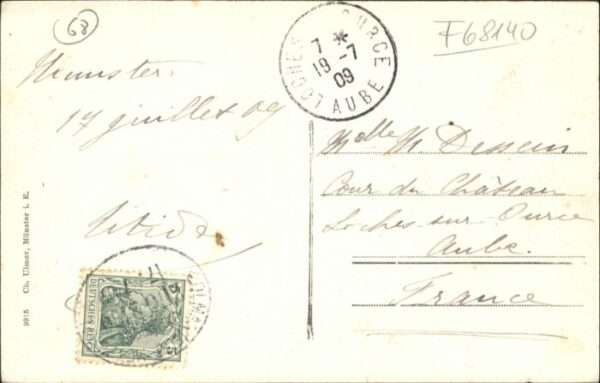 68
F68140
LOCHES S OURCE
7 *
19 -7
09
AUBE
Munster.
17 juillet 09
Mlle M. Dessein
Cour du Château
Loches sur Ource
Aube.
France
DEUTSCHES REICH
5
5
2915 Ch. Ulmer, Münster i. E.